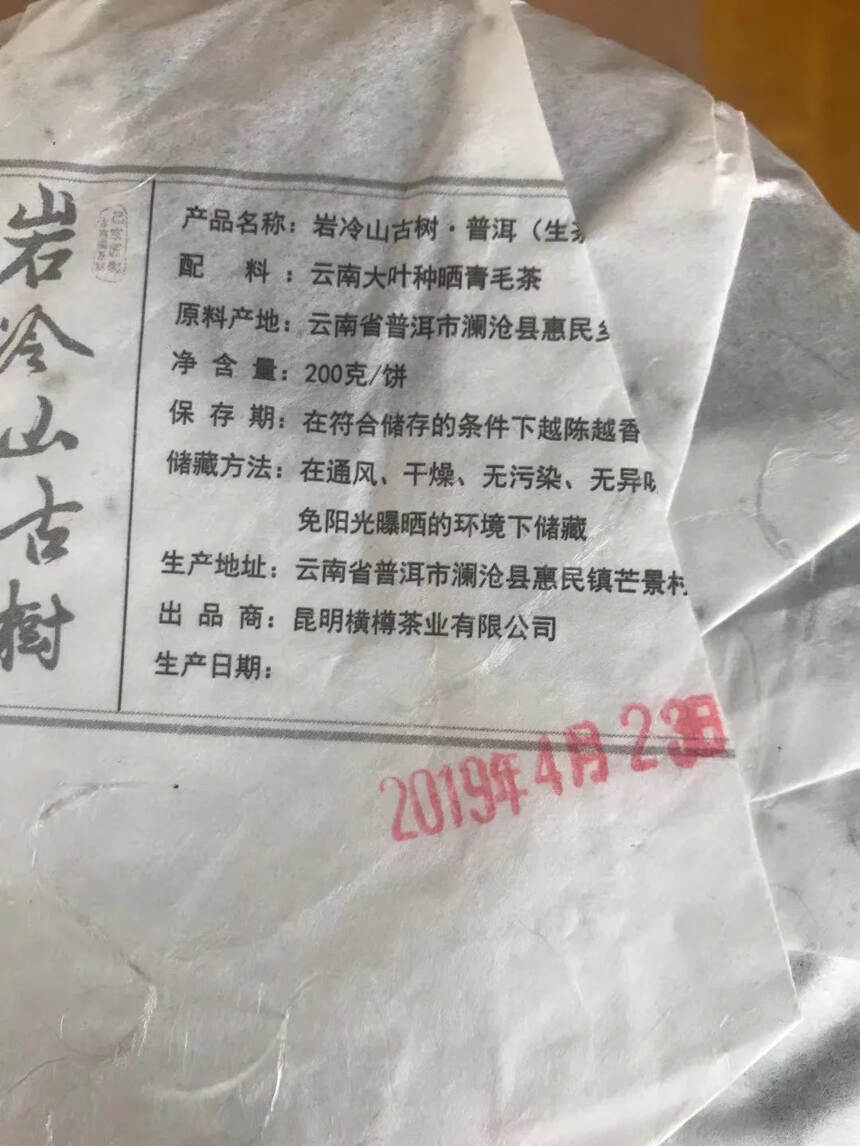 岩冷山古樹
产品名称：岩冷山古树·普洱（生茶
配料：云南大叶种晒青毛茶
原料产地：云南省普洱市澜沧县惠民乡
净含量：200克/饼
保存期：在符合储存的条件下越陈越香
储藏方法：在通风、干燥、无污染、无异味
免阳光曝晒的环境下储藏
生产地址：云南省普洱市澜沧县惠民镇芒景村
出品商：昆明横樽茶业有限公司
生产日期：
2019年4月23日